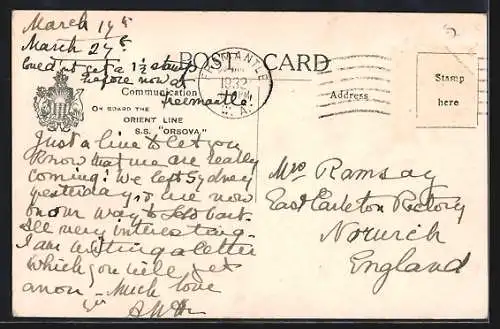 March 19th
March 27th
Coud'nt get a 1½ stamp
before now at
Freemantle.
POST CARD
FREMANTLE
1932
W. A.
Communication
ON BOARD THE
ORIENT LINE
S.S. "ORSOVA."
Address
Stamp
here
Just a line to let you
know that we are really
coming! We left Sydney
yesterday & are now
on our way to Hobart.
All very interesting.
I am writing a letter
which you will get
anon - Much love
Mrs Ramsay
East Carleton Rectory
Norwich
England